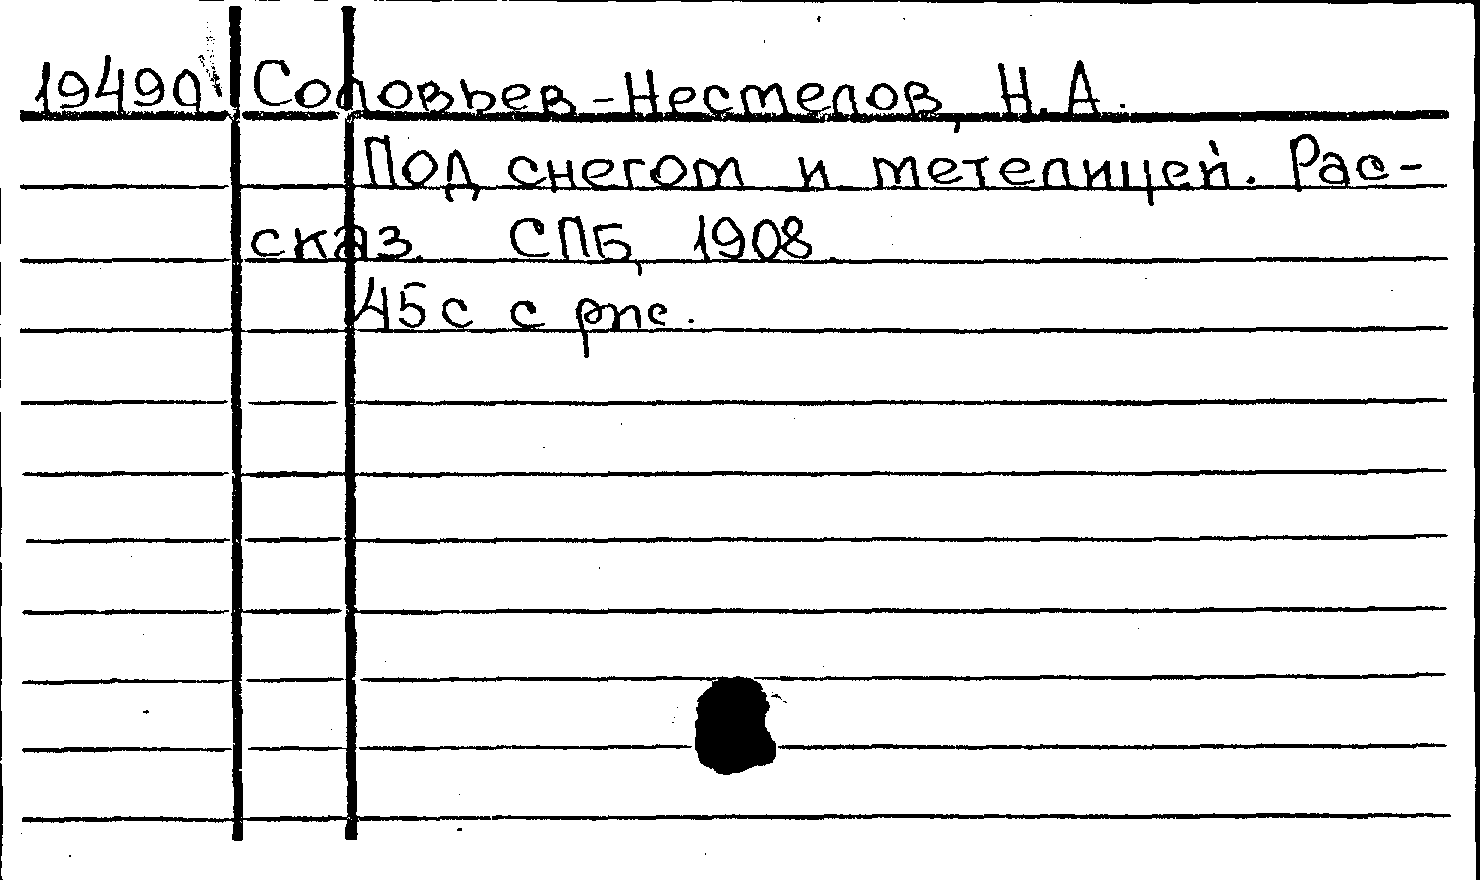 19490 Соловьев-Нестелов, Н.А.
Под снегом и метелицей. Рас-
сказ. СПБ, 1908.
45с с рис.